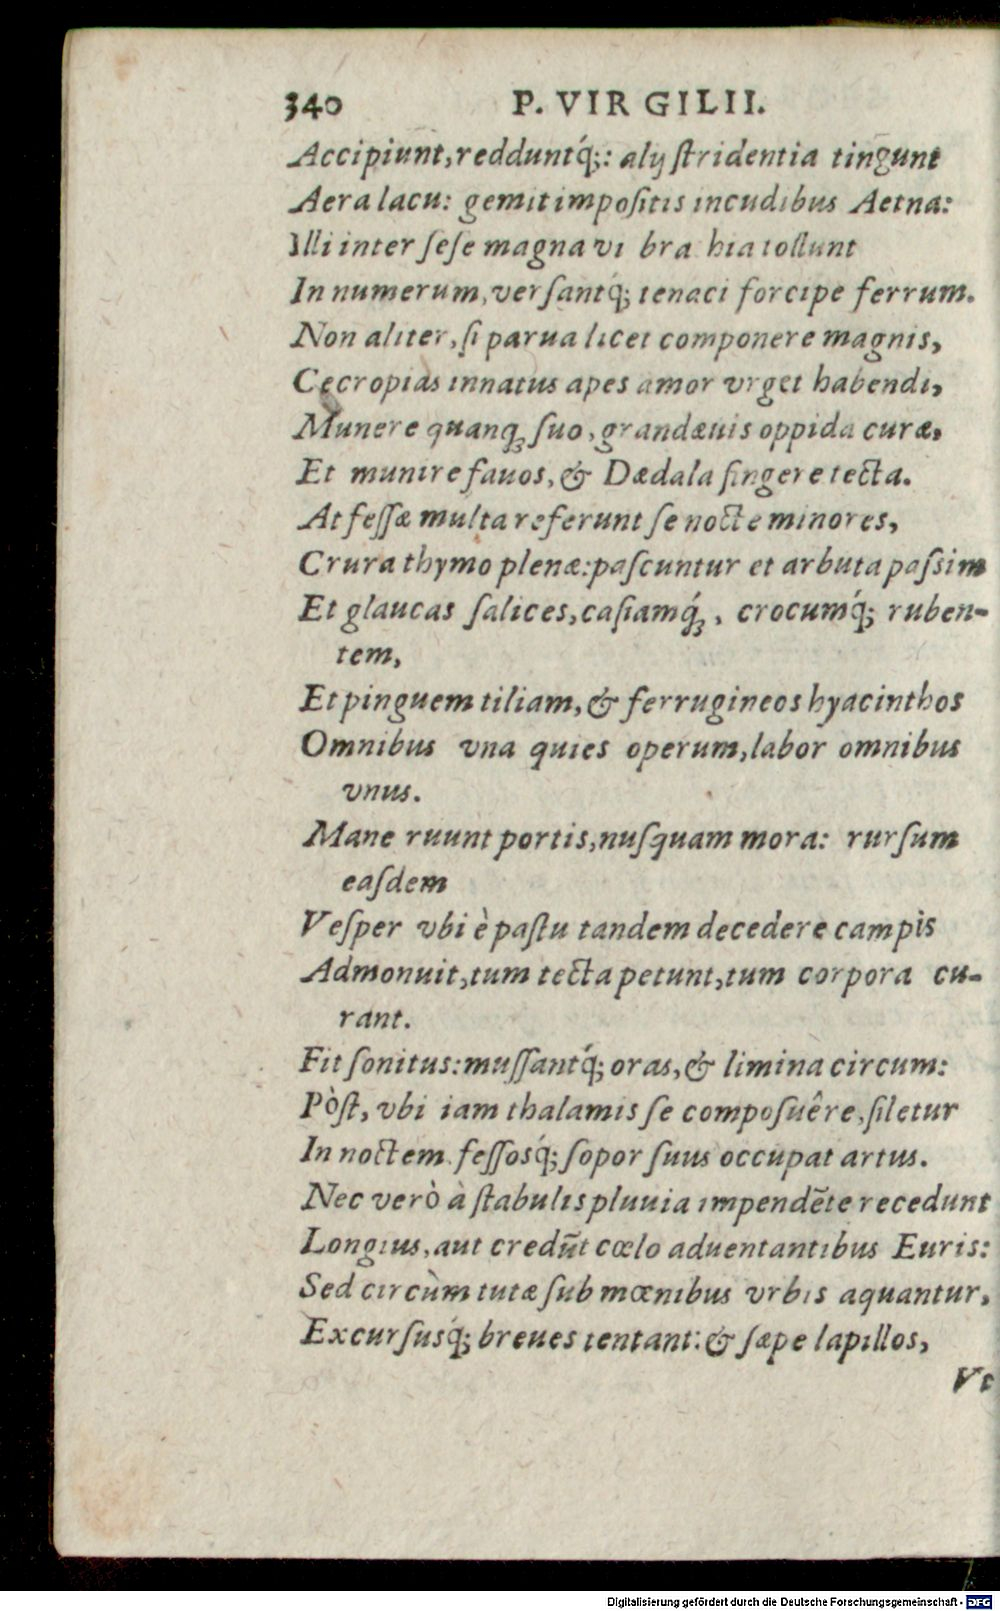 340 P. VIRGILII.
Accipiunt, redduntq́;: alij ſtridentia tingunt
Aera lacu: gemit impoſitis incudibus Aetna:
Illi inter ſeſe magna vi bra hia tollunt
In numerum, verſantq́; tenaci forcipe ferrum.
Non aliter, ſi parua licet componere magnis,
Cecropias innatus apes amor vrget habendi,
Munere quanqꝫ ſuo, grandæuis oppida curæ,
Et munire fauos, & Dædala fingere tecta.
At feſſæ multa referunt ſe nocte minores,
Crura thymo plenæ: paſcuntur et arbuta paſsim
Et glaucas ſalices, caſiamq́ꝫ, crocumq́; ruben-
tem,
Et pinguem tiliam, & ferrugineos hyacinthos
Omnibus vna quies operum, labor omnibus
vnus.
Mane ruunt portis, nuſquam mora: rurſum
eaſdem
Veſper vbi è paſtu tandem decedere campis
Admonuit, tum tecta petunt, tum corpora cu-
rant.
Fit ſonitus: muſſantq́; oras, & limina circum:
Pòſt, vbi iam thalamis ſe compoſuêre, ſiletur
In noctem feſſosq́; ſopor ſuus occupat artus.
Nec verò à ſtabulis pluuia impendẽte recedunt
Longius, aut credũt cœlo aduentantibus Euris:
Sed circùm tutæ ſub mœnibus vrbis aquantur,
Excurſusq́; breues tentant: & ſæpe lapillos,
Vt
Digitalisierung gefördert durch die Deutsche Forschungsgemeinschaft - DFG